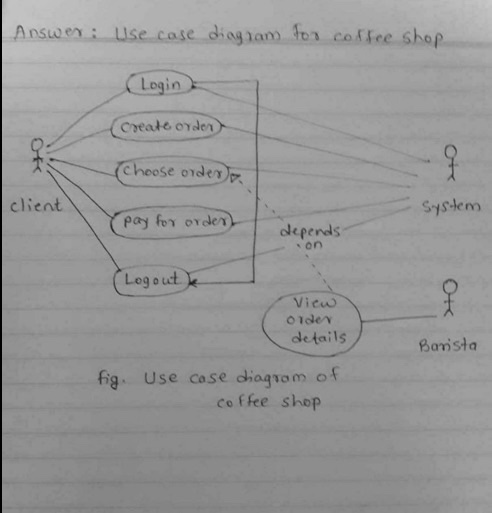 Answer: Use case diagram for coffee shop
Login
Create order
choose order
client
System
pay for order
depends
on
Logout
View
order
details
Barista
fig. Use case diagram of
coffee shop